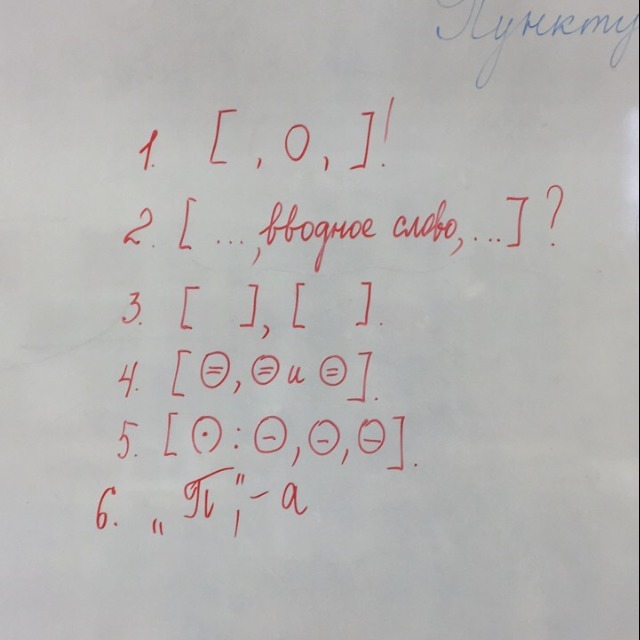 Пункту
1. [ , О, ]!
2. [ ..., вводное слово, ... ] ?
3. [ ], [ ].
4. [ ⊜, ⊜ и ⊜ ].
5. [ ⊙ : ⊖, ⊖, ⊖ ].
6. „П", – а